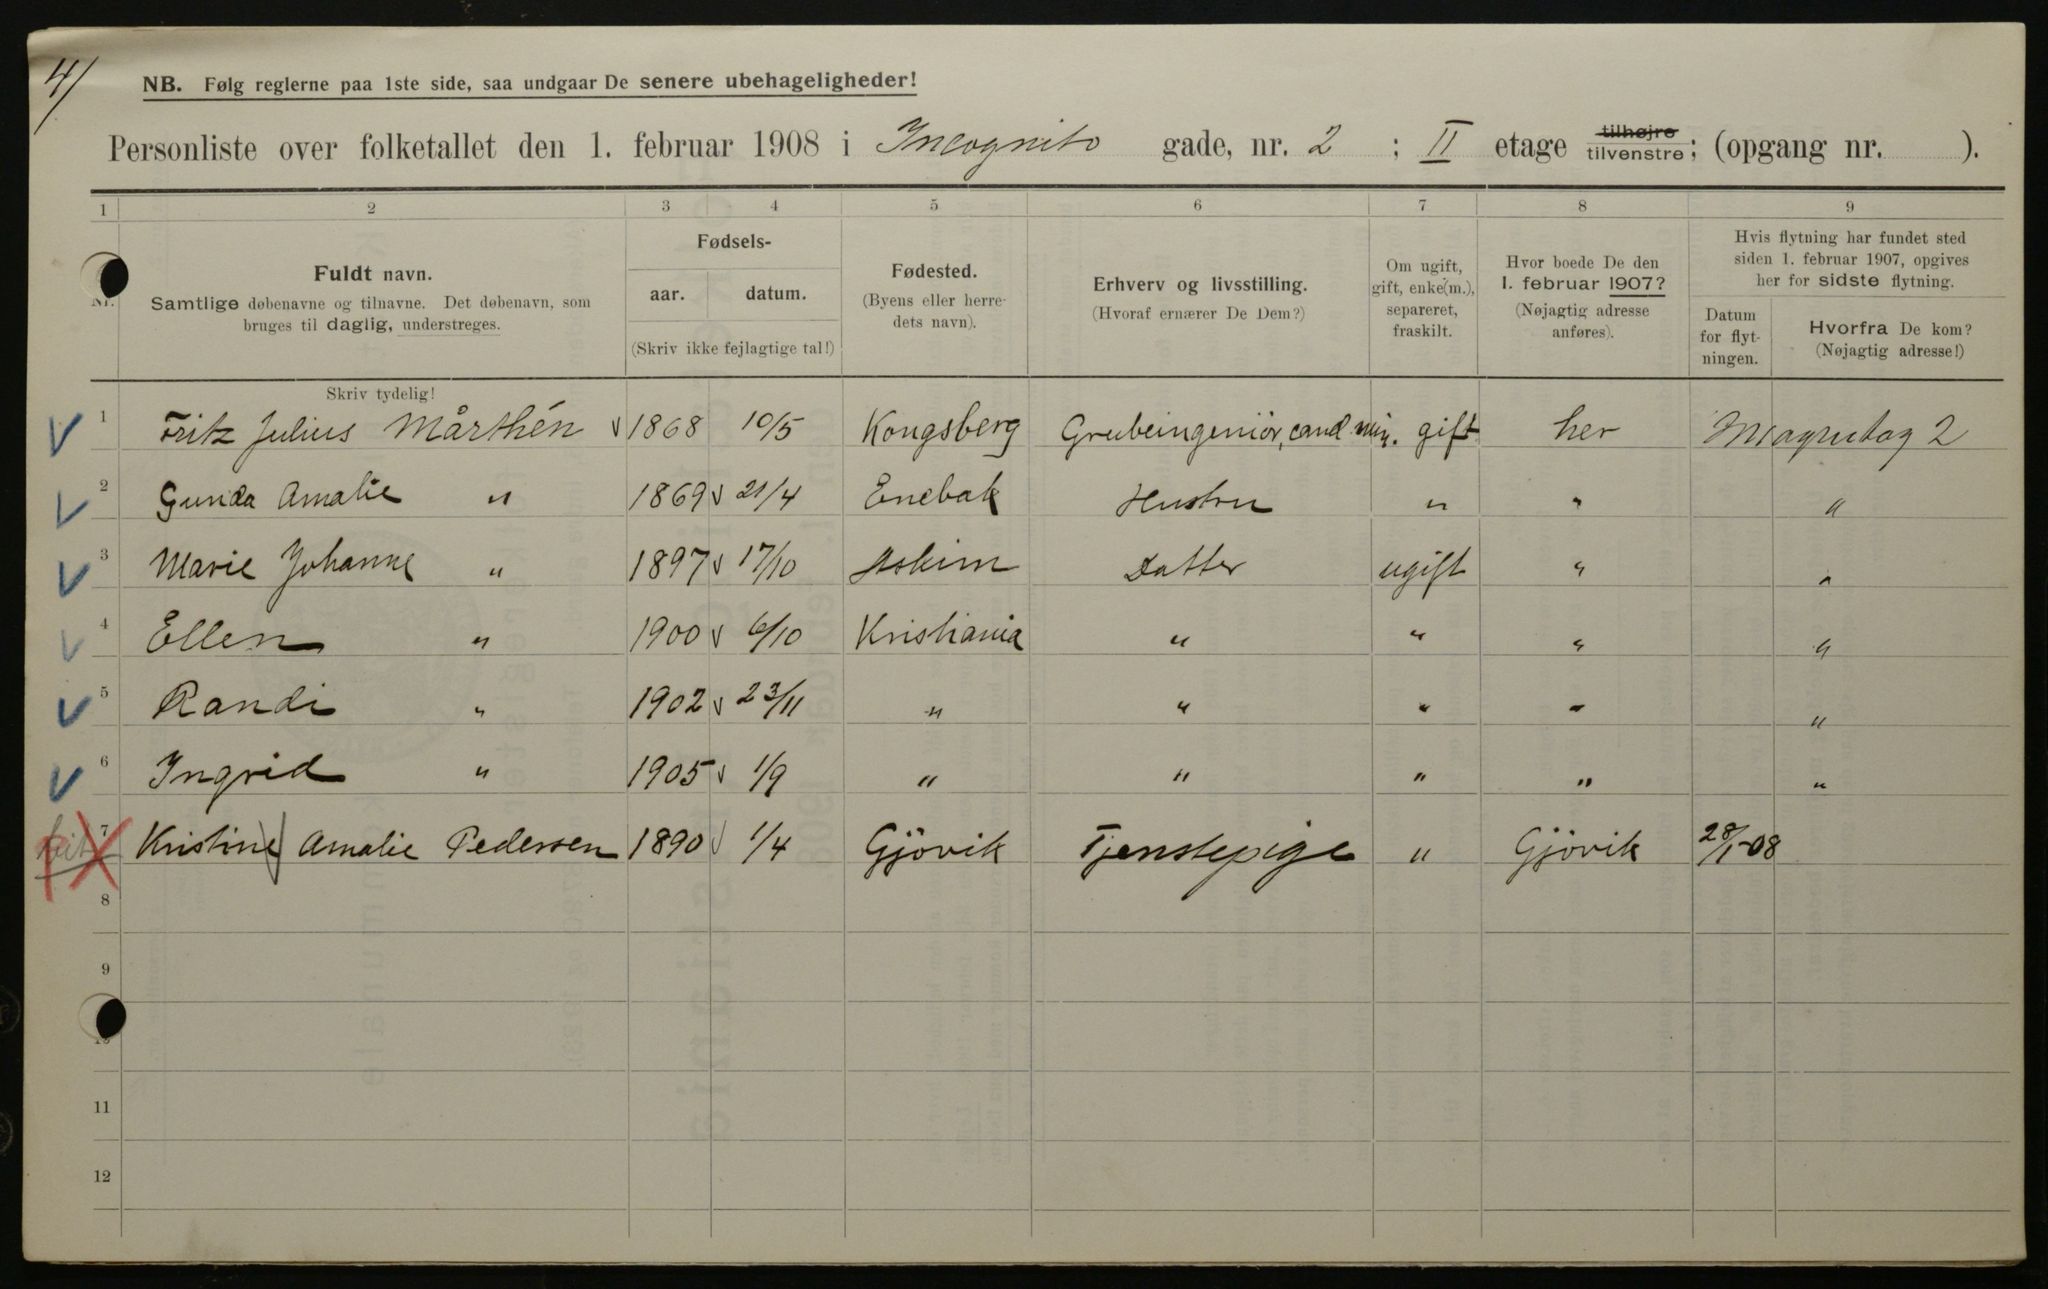 4/
NB. Følg reglerne paa 1ste side, saa undgaar De senere ubehageligheder!
Personliste over folketallet den 1. februar 1908 i Incognito gade, nr. 2 ; II etage tilhøjre tilvenstre; (opgang nr. ).
1 2 3 4 5 6 7 8 9
Nr.
Fuldt navn.
Samtlige døbenavne og tilnavne. Det døbenavn, som
bruges til daglig, understreges.
Skriv tydelig!
Fødsels-
aar. datum.
(Skriv ikke fejlagtige tal!)
Fødested.
(Byens eller herre-
dets navn).
Erhverv og livsstilling.
(Hvoraf ernærer De Dem?)
Om ugift,
gift, enke(m.),
separeret,
fraskilt.
Hvor boede De den
1. februar 1907?
(Nøjagtig adresse
anføres).
Hvis flytning har fundet sted
siden 1. februar 1907, opgives
her for sidste flytning.
Datum
for flyt-
ningen.
Hvorfra De kom?
(Nøjagtig adresse!)
1 Fritz Julius Mårthén 1868 10/5 Kongsberg Grubeingeniör, cand min. gift her 2
2 Gunda Amalie " 1869 21/4 Enebak Hustru " " "
3 Marie Johanne " 1897 17/10 Askim Datter ugift " "
4 Ellen " 1900 6/10 Kristiania " " " "
5 Randi " 1902 23/11 " " " " "
6 Ingrid " 1905 1/9 " " " " "
7 Kristine Amalie Pedersen 1890 1/4 Gjövik Tjenstepige " Gjövik 28/1-08
8
9
10
11
12